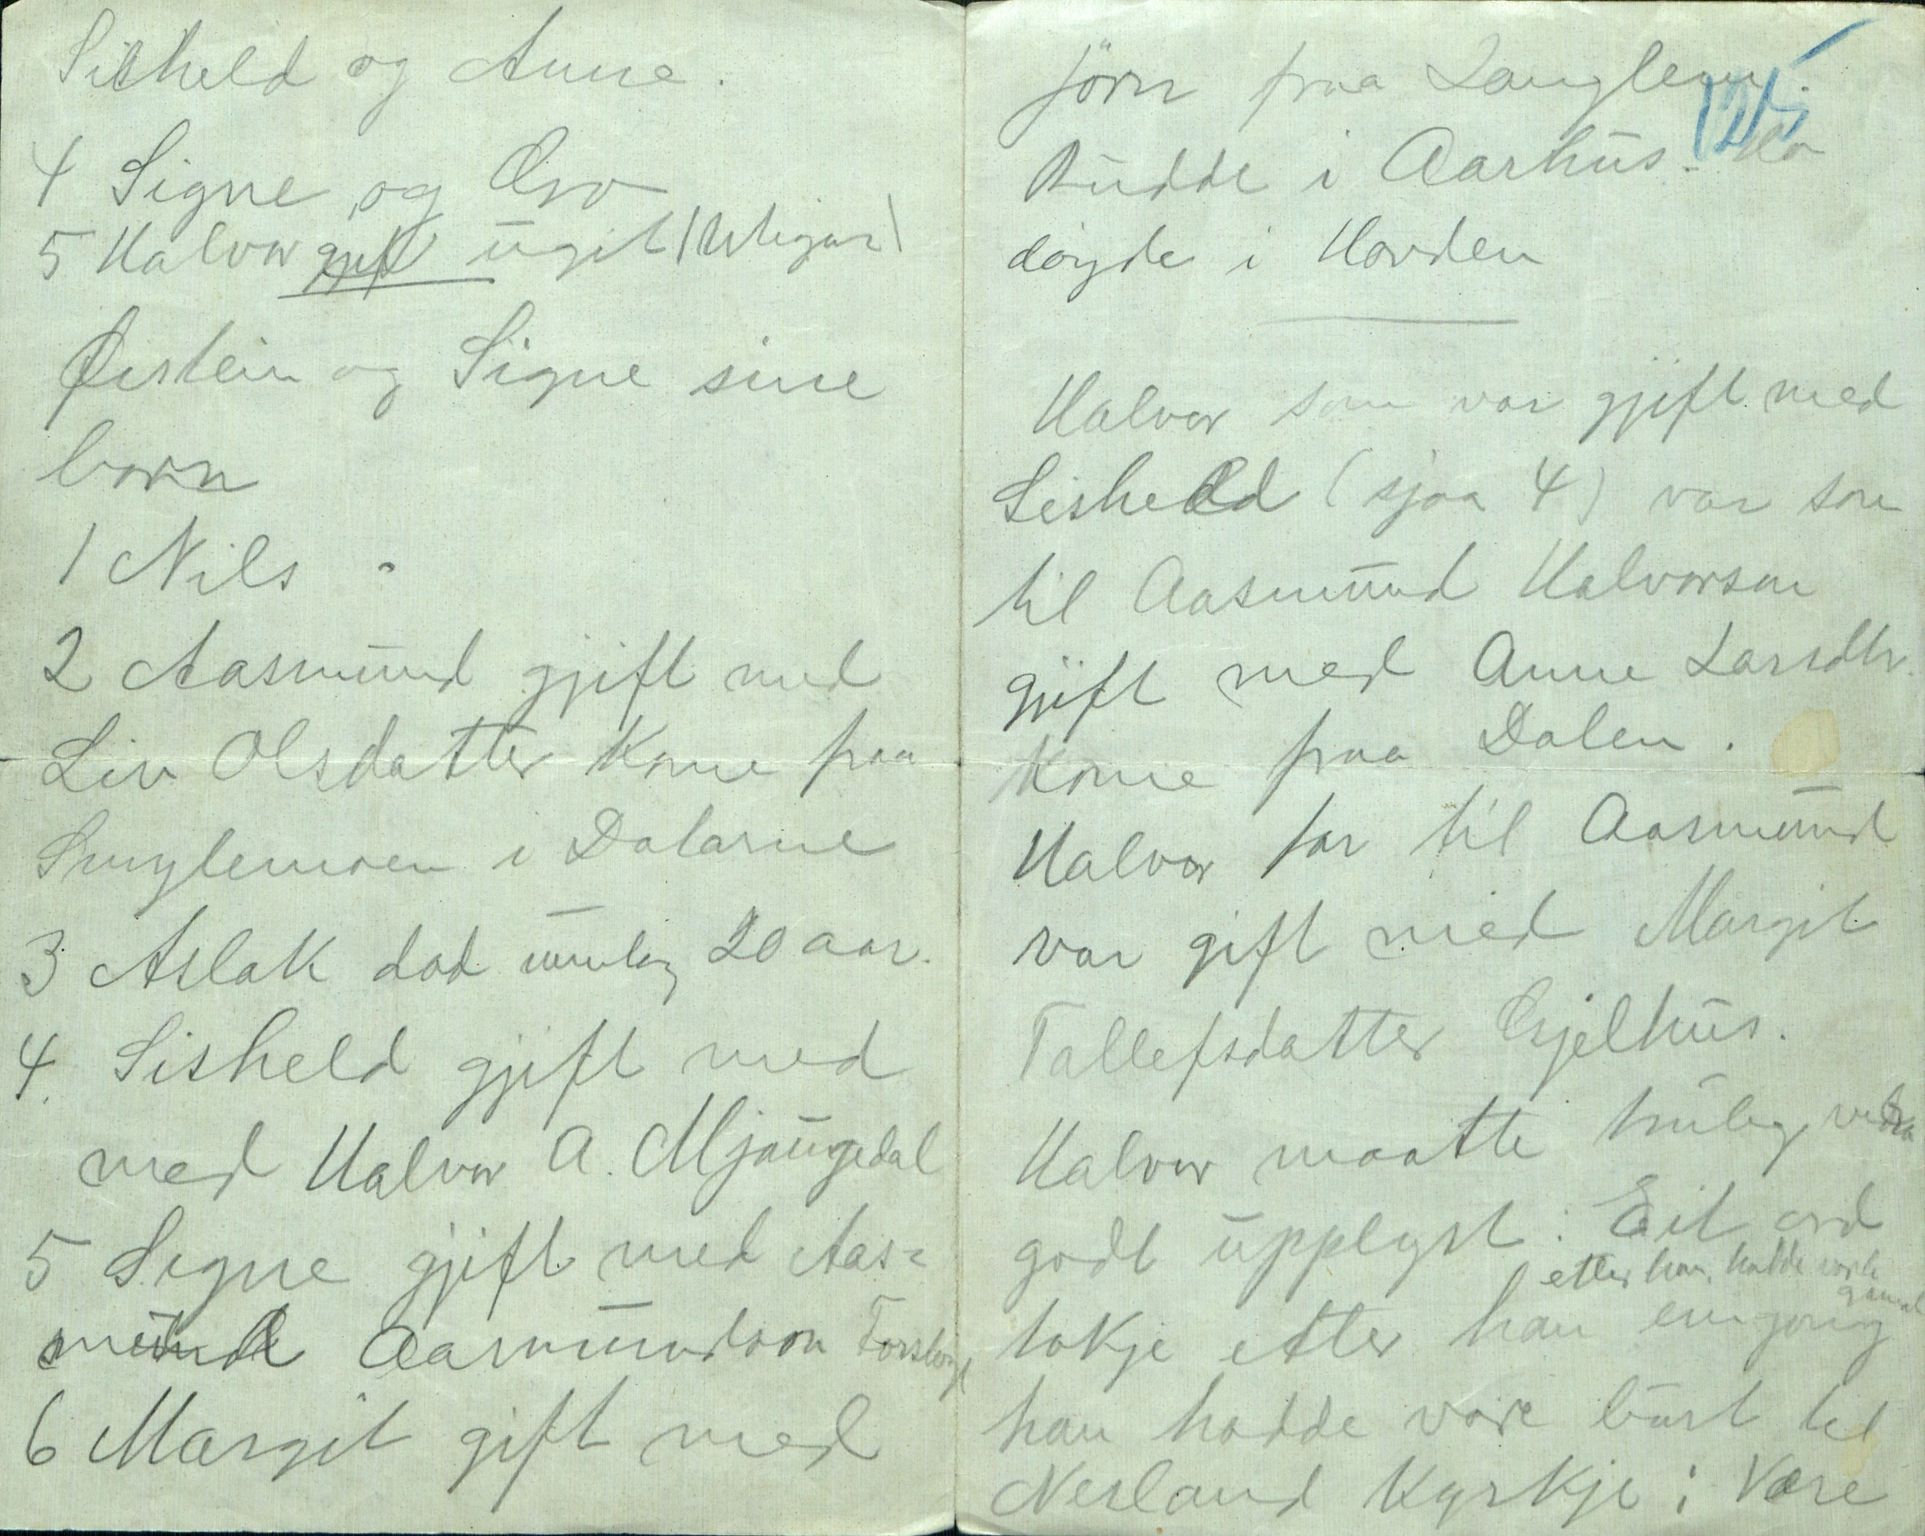 Sisheld og Anne.
4 Signe og
5 Halvor ugift
Øistein og Signe sine
born
1 Nils
2 Aasmund gjift med
Liv Olsdatter kome fraa
i Dalarne
3 Aslak død umlag 20 aar.
4. Sisheld gjift med
med Halvor A. Mjaugedal
5 Signe gjift med Aas=
mund Aasmundson
6 Margit gift med
Jörn fraa
125
Budde i Aarhus. Ho
döyde i Hovden
Halvor som var gjift med
Sisheld (sjaa 4) var son
til Aasmund Halvorson
gjift med Anne Larsdtr.
Kome fraa Dalen.
Halvor far til Aasmund
var gift med Margit
Tallefsdatter Gjelhus.
Halvor maatte truleg
godt upplyst: Eit ord
etter han, hadde
tokje etter han eingong
han hadde vore burt til
Nesland Kyrkje: Være